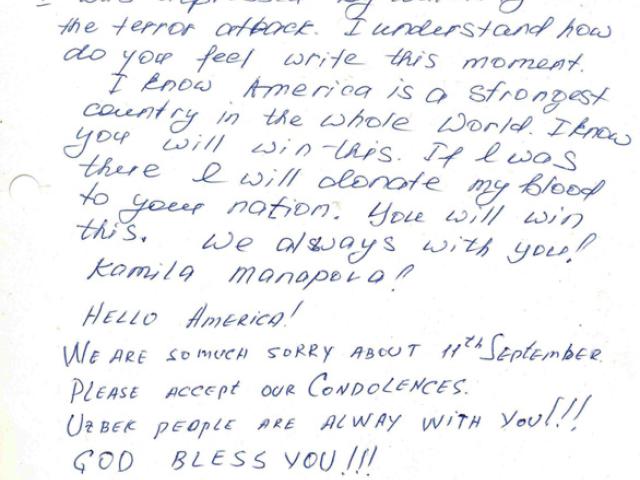 the terror attack. I understand how
do you feel write this moment.
I know America is a strongest
country in the whole World. I know
you will win this. If I was
there I will donate my blood
to your nation. You will win
this. We always with you!
Kamila Manapova!
HELLO AMERICA!
WE ARE SO MUCH SORRY ABOUT 11th SEPTEMBER.
PLEASE ACCEPT OUR CONDOLENCES.
UZBEK PEOPLE ARE ALWAY WITH YOU!!!
GOD BLESS YOU!!!